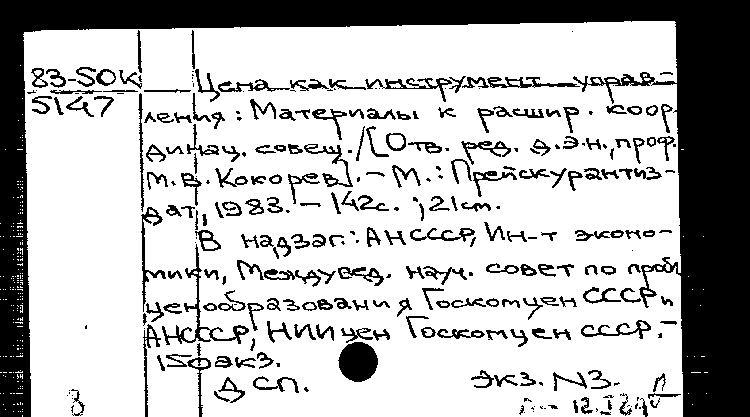 83-5OK Цена как инструмент управ-
5147 ления: Материалы к расшир. коор-
динац. совещ. /[Отв. ред. д.э.н., проф.
М.В. Кокорев]. - М.: Прейскурантиз-
дат, 1983. - 142с. ; 21cm.
В надзаг.: АНСССР, Ин-т эконо-
мики, Междувед. науч. совет по пробл
ценообразования Госкомцен СССР и
АНСССР, НИИ цен Госкомцен СССР. -
150экз.
ДСП. экз. N3.
8